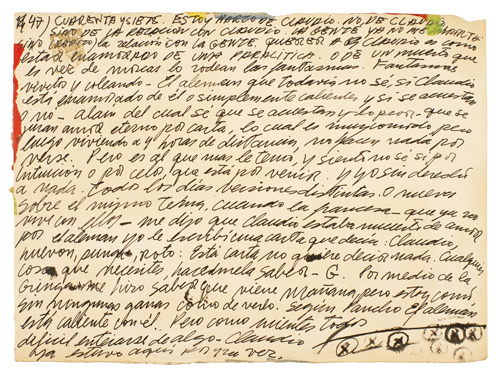 47) CUARENTA Y SIETE. ESTOY HARTO DE CLAUDIO. NO, DE CLAUDIO
SINO DE LA RELACION CON CLAUDIO. LA GENTE YA NO ME
SINO la relación con LA GENTE. QUERER A Claudio es como
estar enamorado DE UNA PARALITICA. O DE UN muerto que
en vez de moscas lo rodean los fantasmas. Fantasmas
vivito y coleando. El alemán que todavía no sé, si Claudio
está enamorado de él o simplemente calientes y si se acuestan
o no. alan del cual se que se acuestan y lo peor que se
juran amor eterno por carta, lo cual es muy cómodo, pero
luego viviendo a 4 horas de distancia, no hacen nada por
verse. Pero es al que mas le temo, y siento no sé si por
intuición o por celo, que está por venir. y yo sin derecho
a nada. todos los días versiones distintas. O nuevas
sobre el mismo tema, cuando la francesa que ya no
vive con ellos me dijo que Claudio estaba muerto de amor
por el alemán yo le escribí una carta que decía: Claudio,
huevon, puna, roto. Esta carta no quiere decir nada. Cualquier
cosa que necesites, hacedmela saber - G. Por medio de la
gringa me hizo saber que viene mañana, pero estoy como
sin ningunas ganas de verlo. Según Pancho el alemán
está caliente con él. Pero como mienten todos
difícil enterarse de algo. Claudio
ya estuvo aquí por una vez.